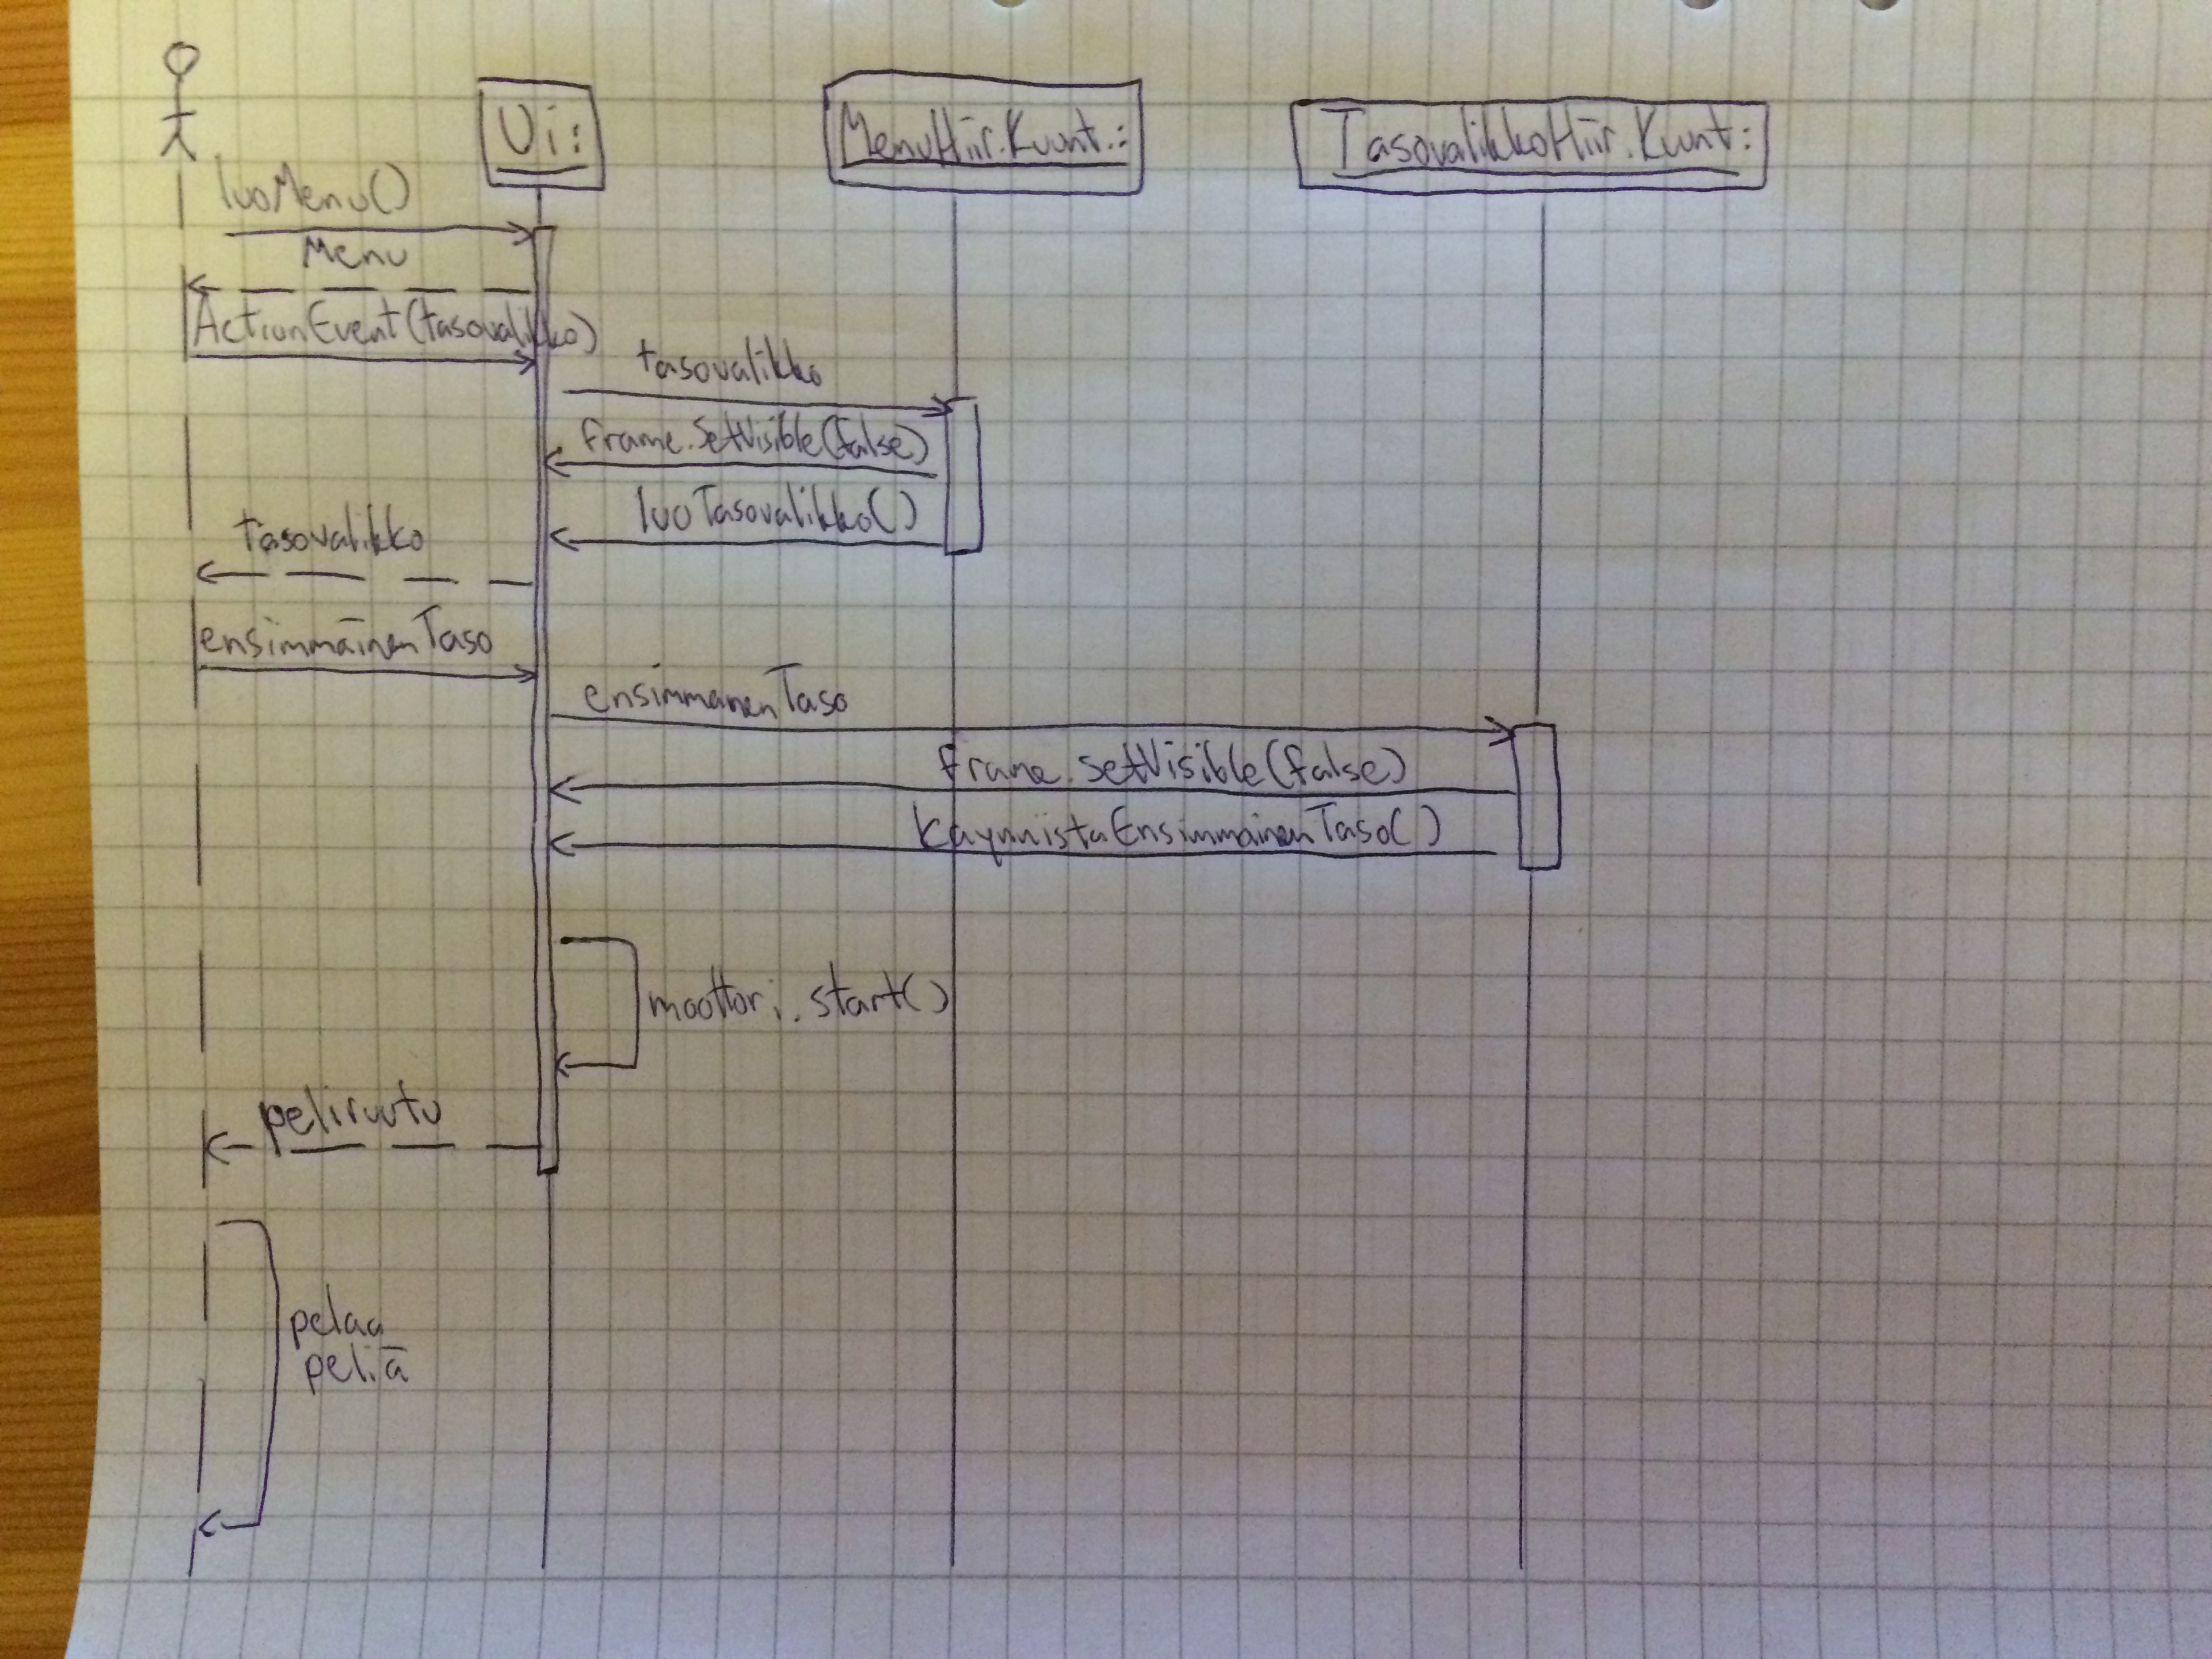 Ui:
MenuHiir.Kuunt.:
TasovalikkoHiir.Kuunt:
luoMenu()
Menu
ActionEvent(tasovalikko)
tasovalikko
frame.SetVisible(false)
luoTasovalikko()
tasovalikko
ensimmäinenTaso
ensimmanenTaso
frame.setVisible(false)
KaynnistaEnsimmainenTaso()
moottori.start()
peliruutu
pelaa
peliä